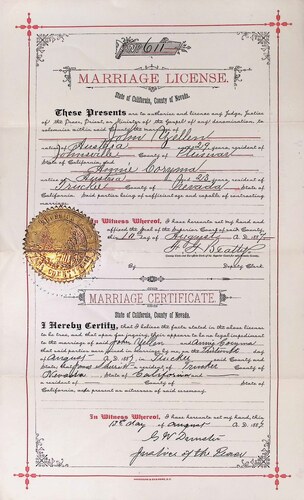 No 617
MARRIAGE LICENSE.
State of California, County of Nevada.
These Presents are to authorize and license any Judge, Justice
of the Peace, Priest, or Minister of the Gospel of any denomination, to
solemnize within said County the marriage of
John Yellen
native of Austria aged 29 years, resident of
Johnsville County of Plumas
State of California, and
Annie Coryma
native of Austria aged 23, resident of
Truckee County of Nevada
State of California. Said parties being of sufficient age and capable of contracting
marriage.
In Witness Whereof, I have hereunto set my hand and
affixed the Seal of the Superior Court of said County,
this 10th day of August A. D. 1897
F. G. Beatty
Deputy Clerk.
MARRIAGE CERTIFICATE.
State of California, County of Nevada.
I Hereby Certify, that I believe the facts stated in the above license
to be true, and that upon due inquiry there appears to be no legal impediment
to the marriage of said John Yellen and Annie Coryma
that said parties were joined in marriage by me, on the Twelfth day
of August A. D. 1897, in Truckee
State of California a resident of Truckee County of
Nevada State of California and
a resident of County of State of
California, was present as witnesses of said ceremony.
In Witness Whereof, I have hereunto set my hand, this
12th day of August A. D. 1897
G W
Justice of the Peace